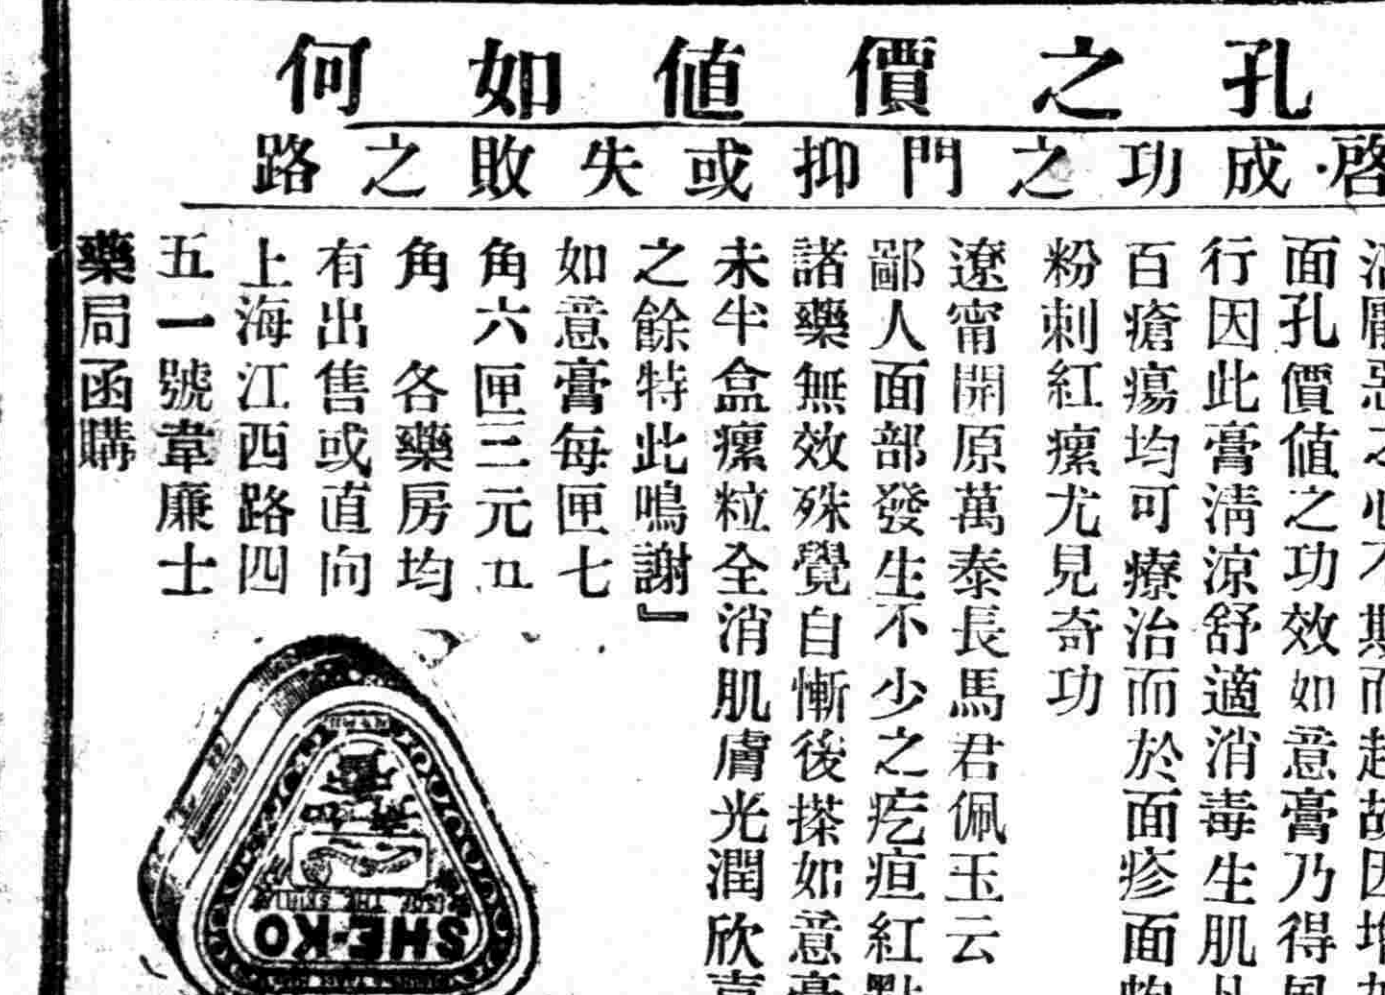 孔之價値如何
啓成功之門抑或失敗之路
面孔價値之功效如意膏乃得風
行因此膏淸涼舒適消毒生肌
百瘡瘍均可療治而於面疹面皰
粉刺紅瘰尤見奇功
遼甯開原萬泰長馬君佩玉云
鄙人面部發生不少之疙疸紅點
諸藥無效殊覺自慚後搽如意膏
未半盒瘰粒全消肌膚光潤欣喜
之餘特此鳴謝』
如意膏每匣七
角六匣三元五
角 各藥房均
有出售或直向
上海江西路四
五一號韋廉士
藥局函購
如意膏
SHE-KO